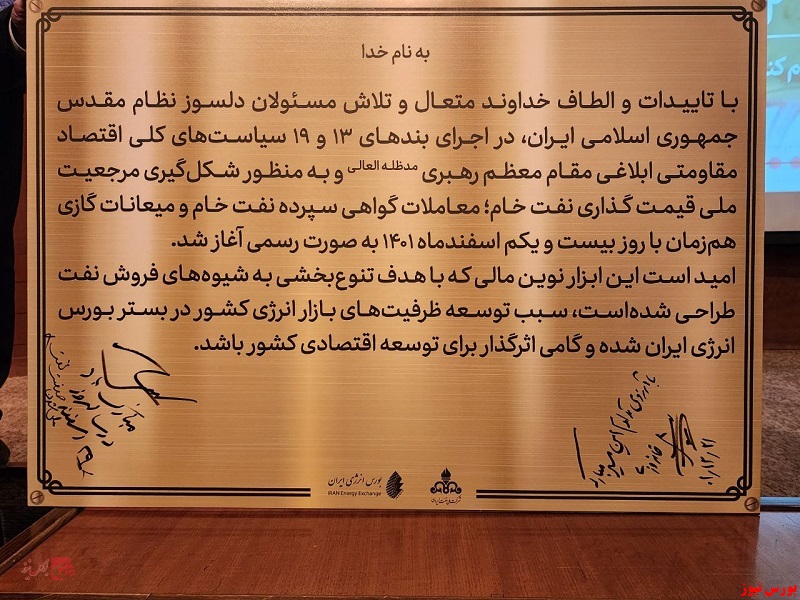 به نام خدا
با تاییدات و الطاف خداوند متعال و تلاش مسئولان دلسوز نظام مقدس
جمهوری اسلامی ایران، در اجرای بندهای ۱۳ و ۱۹ سیاست‌های کلی اقتصاد
مقاومتی ابلاغی مقام معظم رهبری مدظله العالی و به منظور شکل‌گیری مرجعیت
ملی قیمت گذاری نفت خام؛ معاملات گواهی سپرده نفت خام و میعانات گازی
هم‌زمان با روز بیست و یکم اسفندماه ۱۴۰۱ به صورت رسمی آغاز شد.
امید است این ابزار نوین مالی که با هدف تنوع‌بخشی به شیوه‌های فروش نفت
طراحی شده‌است، سبب توسعه ظرفیت‌های بازار انرژی کشور در بستر بورس
انرژی ایران شده و گامی اثرگذار برای توسعه اقتصادی کشور باشد.
۰۱/۱۲/۲۱
شرکت ملی نفت ایران
بورس انرژی ایران
IRAN Energy Exchange
بورس نیوز